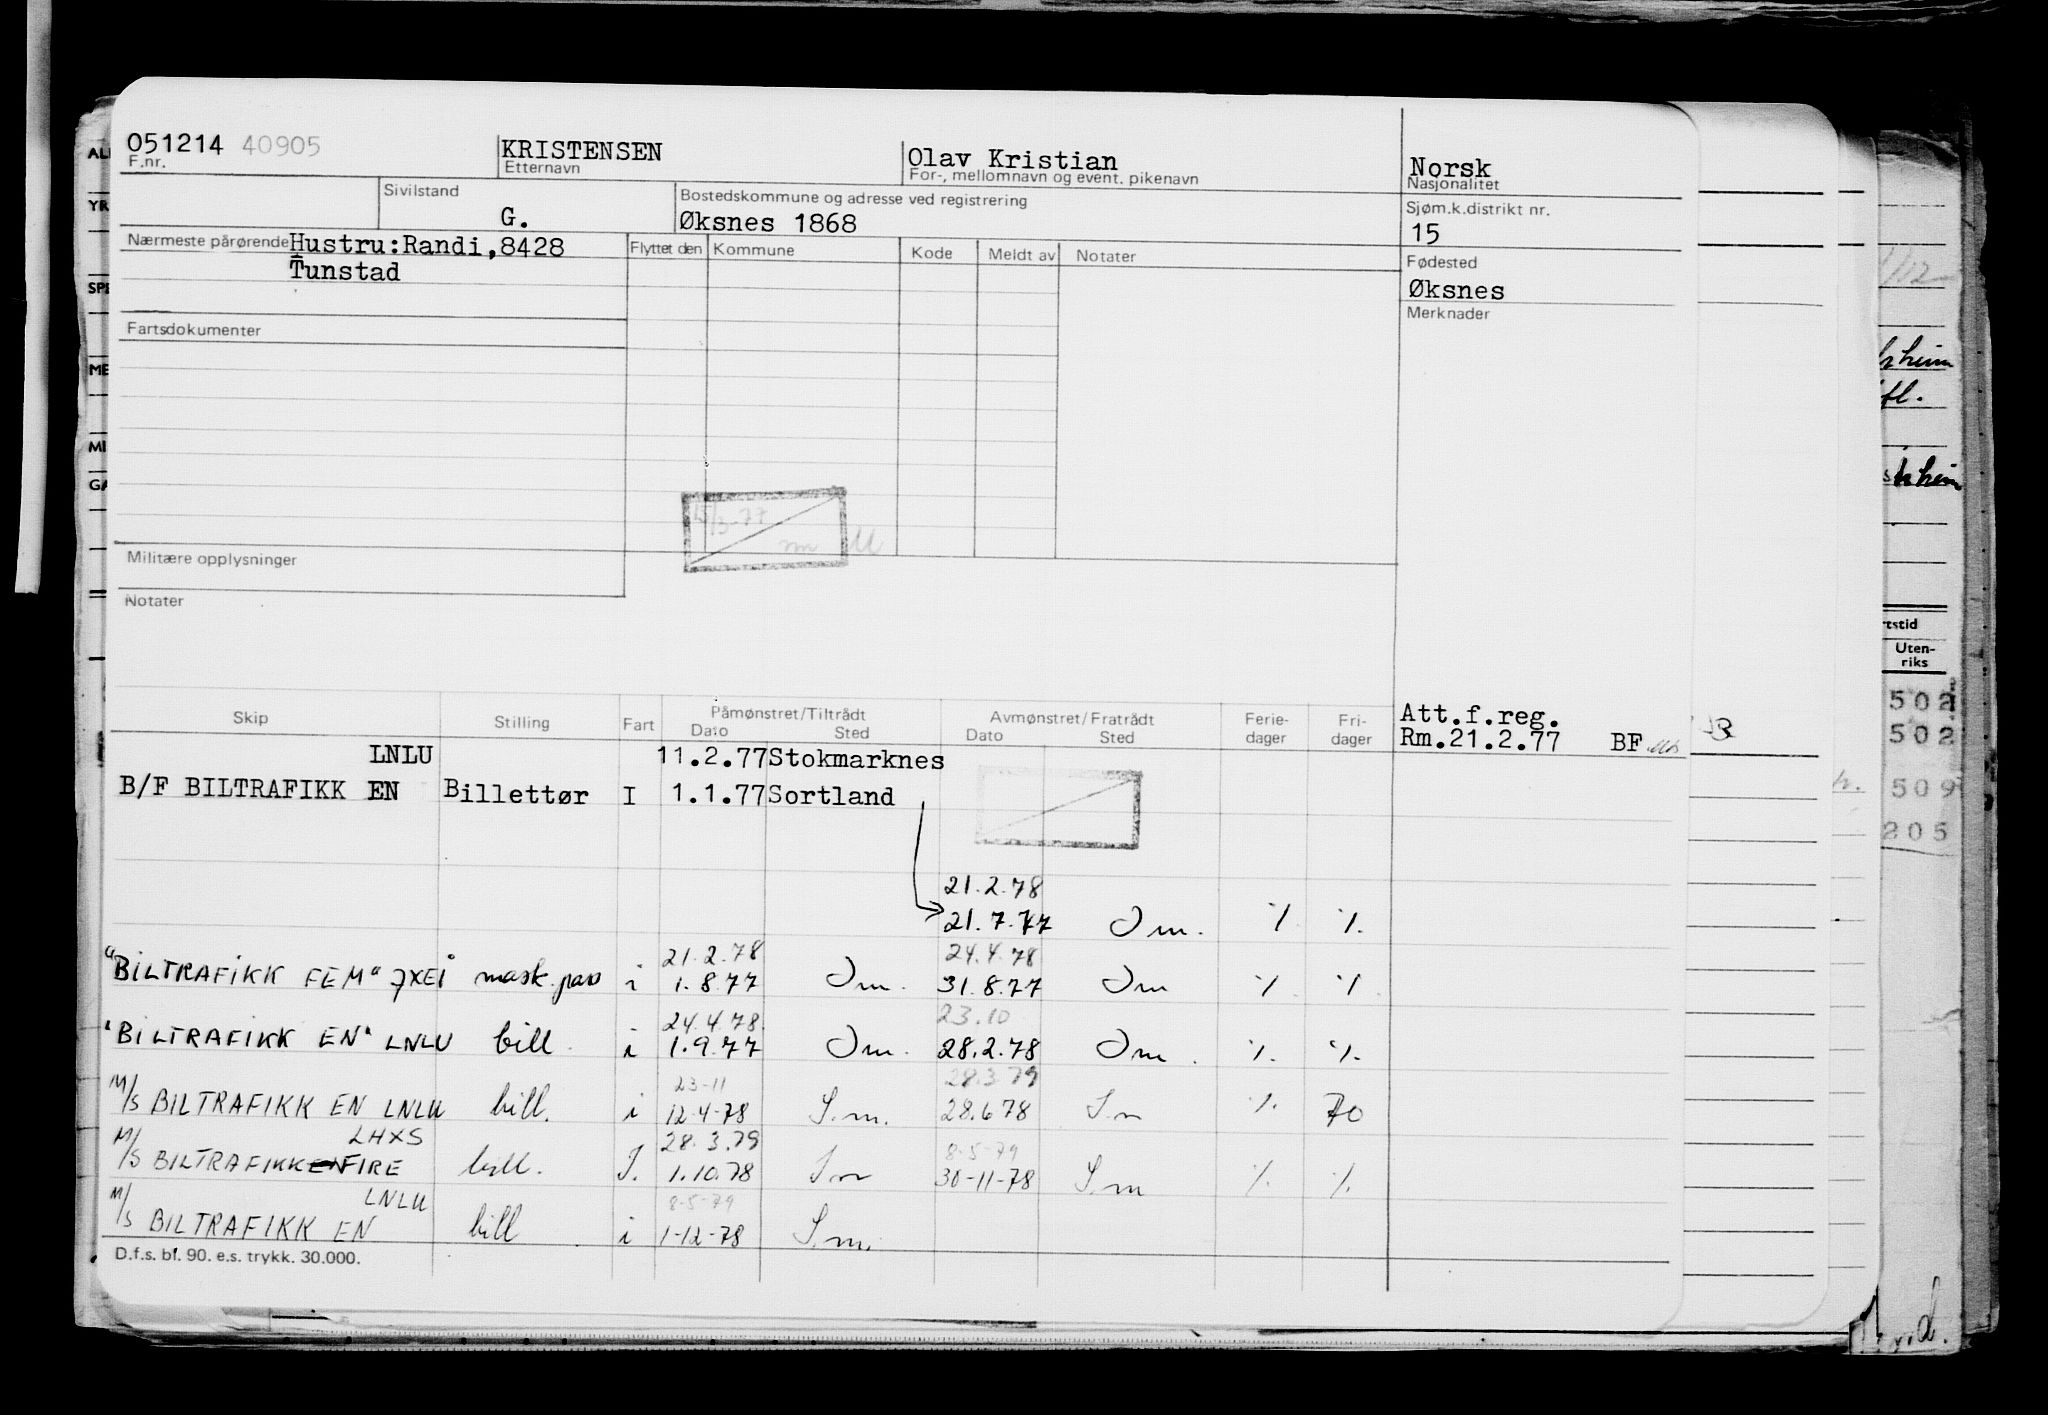 051214 40905 KRISTENSEN Olav Kristian Norsk
F.nr. Etternavn For-, mellomnavn og event. pikenavn Nasjonalitet
Sivilstand Bostedskommune og adresse ved registrering Sjøm.k.distrikt nr.
G. Øksnes 1868 15
Nærmeste pårørende Hustru:Randi,8428 Flyttet den Kommune Kode Meldt av Notater Fødested
Tunstad Øksnes
Fartsdokumenter Merknader
15/3-77
Militære opplysninger
Notater
Skip Stilling Fart Påmønstret/Tiltrådt Avmønstret/Fratrådt Ferie- Fri- Att.f.reg.
Dato Sted Dato Sted dager dager Rm.21.2.77 BF
LNLU 11.2.77 Stokmarknes
B/F BILTRAFIKK EN Billettør I 1.1.77 Sortland
21.2.78
21.7.77 Sm. % %
21.2.78 24.4.78
"BILTRAFIKK FEM" JXEI mask.pass i 1.8.77 Sm. 31.8.77 Sm % %
24.4.78. 23.10
"BILTRAFIKK EN" LNLU bill. i 1.9.77 Sm. 28.2.78 Sm. % %
23-11 28.3.79
M/S BILTRAFIKK EN LNLU bill. i 12-4-78 S.m. 28.6.78 Sm % 70
LHXS 28.3.79 8-5-79
M/S BILTRAFIKK FIRE bill. I. 1.10.78 Sm 30-11-78 S.m % %
LNLU 8-5-79
M/S BILTRAFIKK EN bill i 1-12-78 S.m.
D.f.s. bf. 90. e.s. trykk. 30.000.
ALI
YR
SPE
ME
MI
GA
1/12
fl.
rtstid
Uten-
riks
502
502
509
205